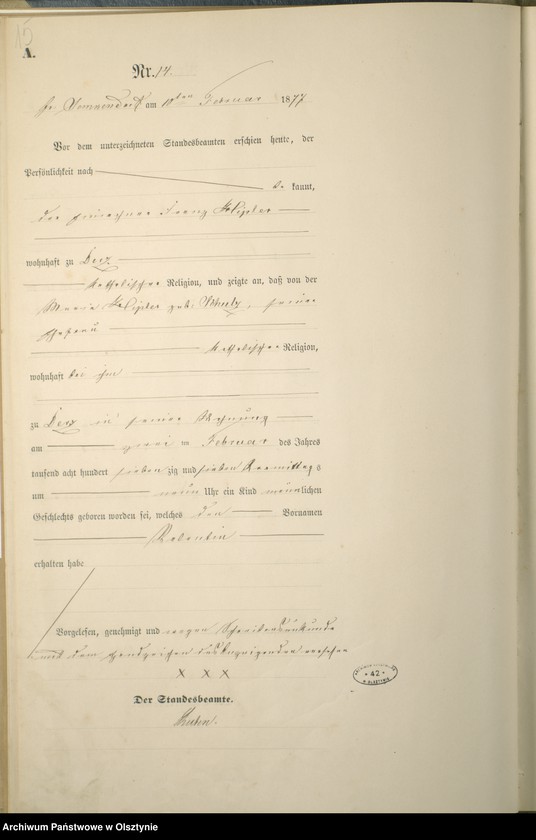 15
A.
Nr. 14.
am Februar 1877
Vor dem unterzeichneten Standesbeamten erschien heute, der
Persönlichkeit nach
be kannt,
der Franz
wohnhaft zu Derz
katholischer Religion, und zeigte an, daß von der
Maria geb. Schulz, seiner
Ehefrau
katholischer Religion,
wohnhaft bei ihm
zu Derz in seiner Wohnung
am zwei ten Februar des Jahres
tausend acht hundert sieben zig und sieben Vormittags
um neun Uhr ein Kind männlichen
Geschlechts geboren worden sei, welches den Vornamen
Valentin
erhalten habe
Vorgelesen, genehmigt und wegen Schreibensunkunde
mit dem Handzeichen des Anzeigenden versehen
X X X
Der Standesbeamte.
42
Archiwum Państwowe w Olsztynie